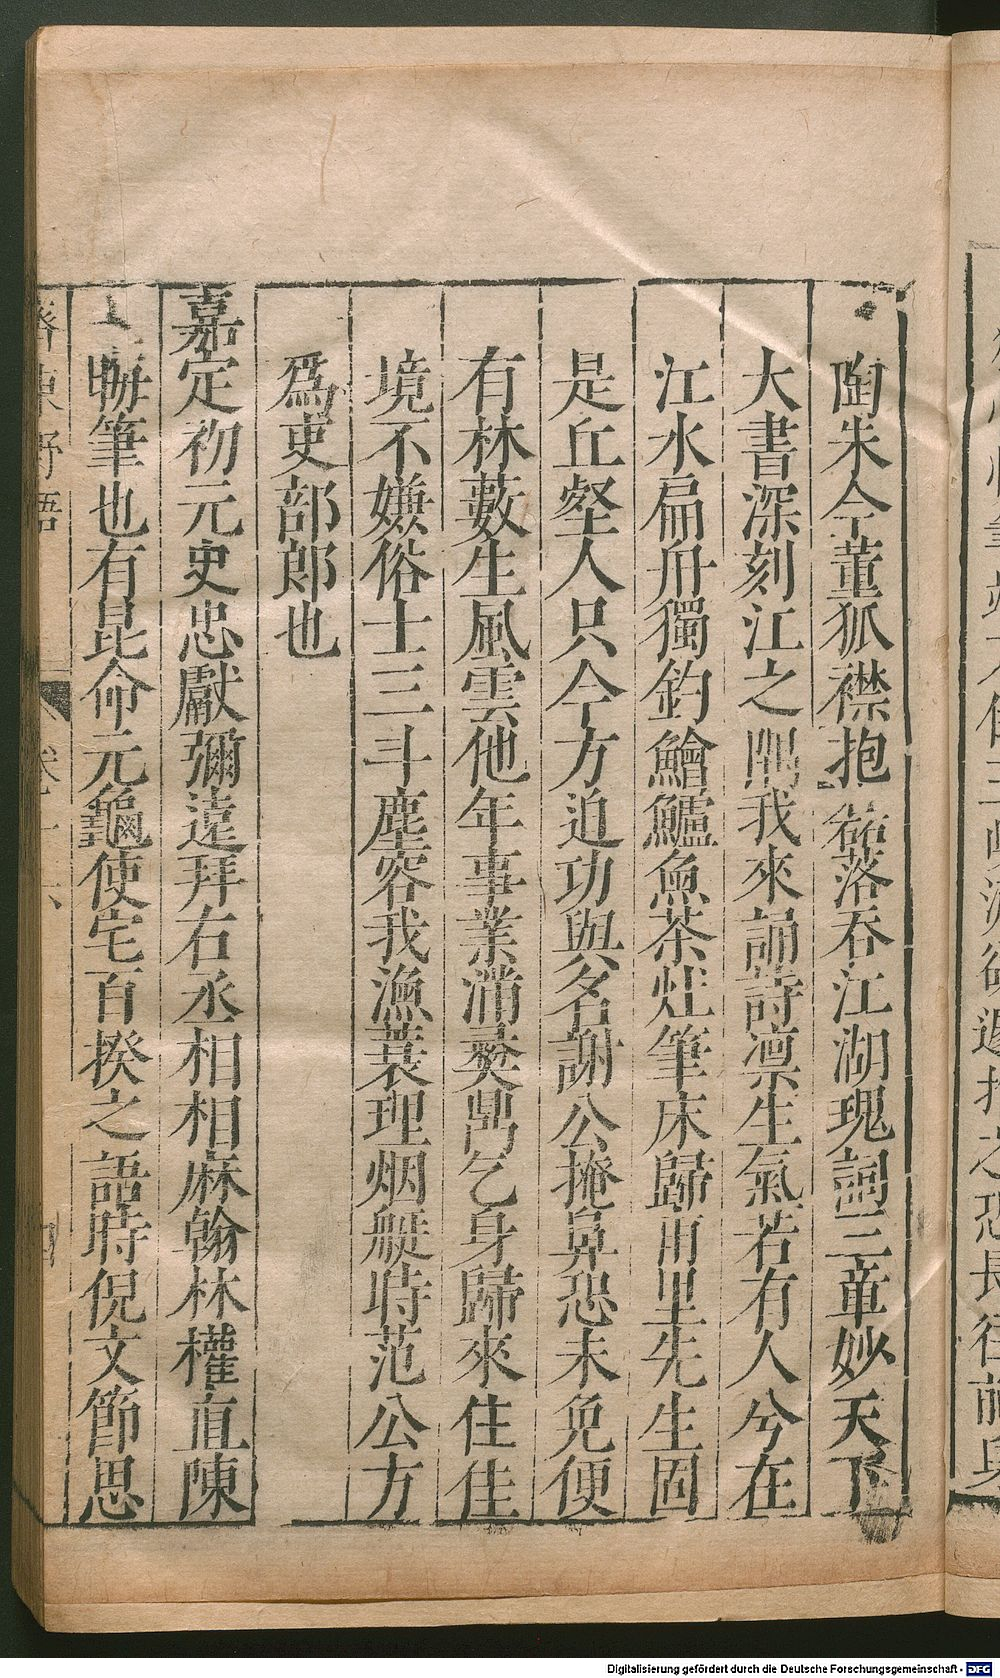 陶朱今董狐襟抱磊落吞江湖瑰詞三章妙天下
大書深刻江之隅我來誦詩凜生氣若有人兮在
江水扁舟獨釣鱠鱸魚茶灶筆床歸甫里先生固
是丘壑人只今方迫功與名謝公掩鼻恐未免便
有林藪生風雲他年事業滿彝鼎乞身歸來住佳
境不嫌俗士三斗塵容我漁蓑理烟艇時范公方
為吏部郎也
嘉定初元史忠獻彌遠拜右丞相相麻翰林權直陳
晦筆也有昆命元龜使宅百揆之語時倪文節思
齊東野語
卷十六
Digitalisierung gefördert durch die Deutsche Forschungsgemeinschaft - DFG